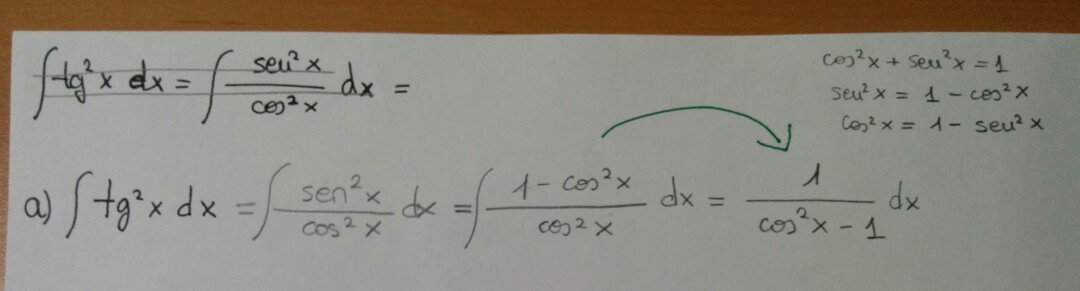 ∫ tg²x dx = ∫ sen²x / cos²x dx =
cos²x + sen²x = 1
sen²x = 1 - cos²x
cos²x = 1 - sen²x
a) ∫ tg²x dx = ∫ sen²x / cos²x dx = ∫ 1 - cos²x / cos²x dx = 1 / cos²x - 1 dx